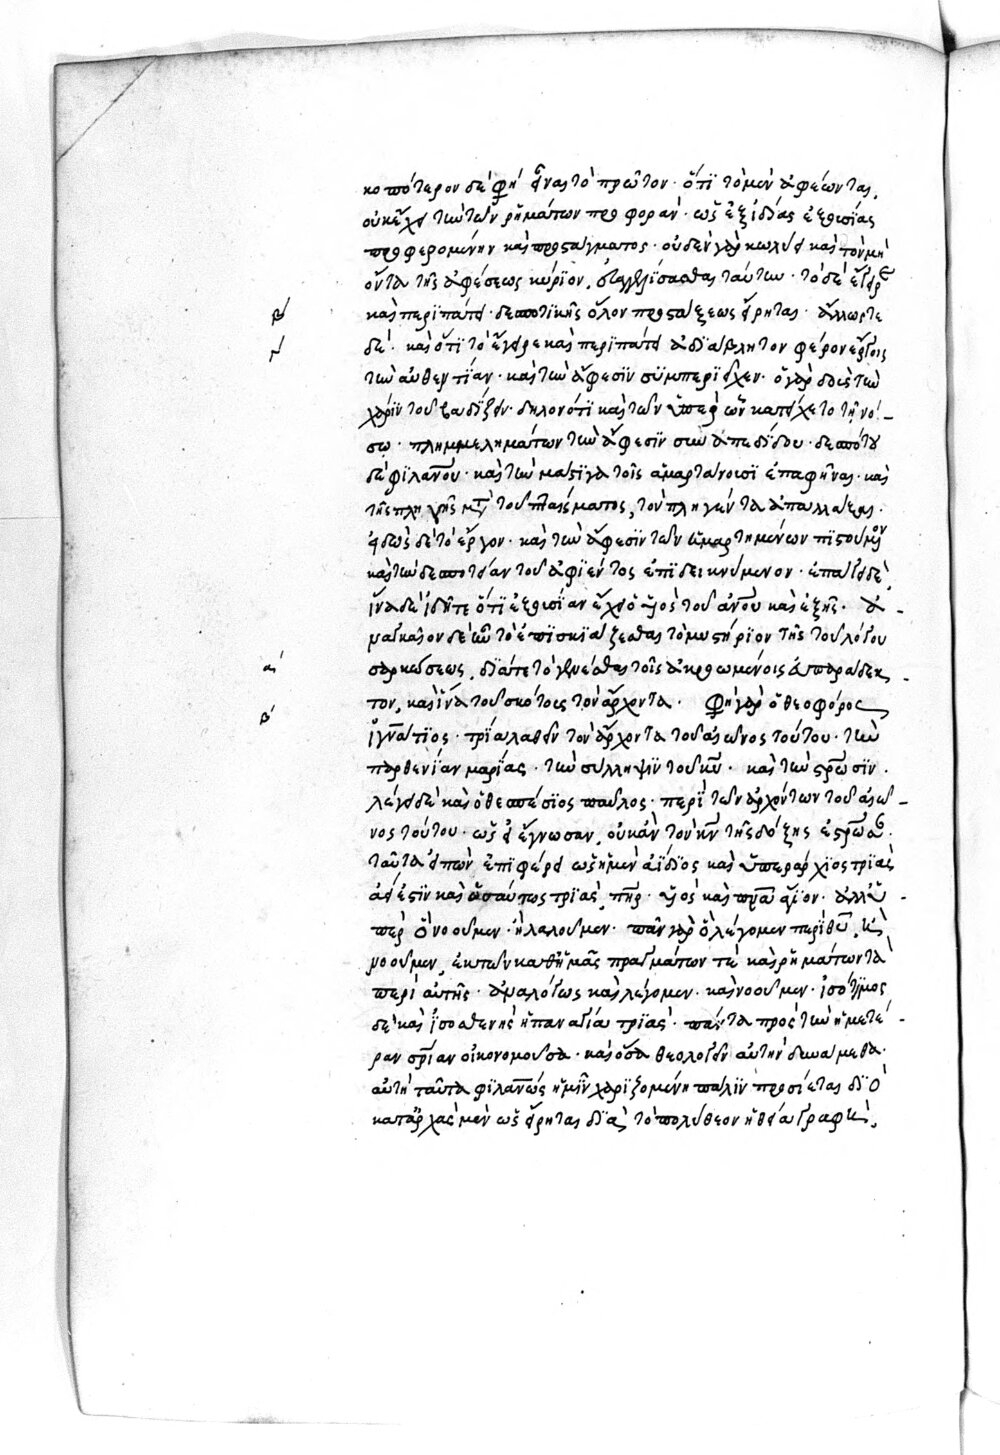 κοπώτερον δέ φη εἶναι τὸ πρῶτον· ὅτι τὸ μὲν ἀφέωνται,
οὐκ εἶχε τὴν τῶν ῥημάτων προφοράν· ὡς ἐξ ἰδίας ἐξουσίας
προφερομένην καὶ προστάγματος· οὐδὲν γὰρ κωλύει καὶ τὸν μὴ
ὄντα τῆς ἀφέσεως κύριον, ταύτην· τὸ δὲ ἔγειρε
β καὶ περιπάτει· δεσποτικῆς ὅλον προστάξεως εἴρηται· ἄλλως τε
γ δὲ· καὶ ὅτι τὸ ἔγειρε καὶ περιπάτει ἀδιάβλητον φέρον
τὴν αὐθεντίαν· καὶ τὴν ἄφεσιν συμπεριεῖχεν· ὁ γὰρ δοὺς τὴν
χάριν τοῦ βαδίζειν· δηλονότι καὶ τῶν ὑπὲρ ὧν κατείχετο τῇ νό-
σῳ· πλημμελημάτων τὴν ἄφεσιν συναπεδίδου· δεσπότου
δὲ φιλανου· καὶ τὴν μάστιγα τοῖς ἁμαρτάνουσι ἐπαφῆναι· καὶ
τῆς πληγῆς μτ τοῦ πταίσματος, τὸν πληγέντα ἀπαλλάξαι·
εἰδὼς δὲ τὸ ἔργον· καὶ τὴν ἄφεσιν τῶν ἡμαρτημένων πιστούμον
καὶ τὴν δεσποτείαν τοῦ ἀφιέντος ἐπιδεικνύμενον· ἐπάγει δὲ
ἵνα δὲ ἰδῆτε ὅτι ἐξουσίαν ἔχει ὁ υἱὸς τοῦ ἀνου καὶ ἑξῆς· ἀ-
ναγκαῖον δὲ ἦν τὸ ἐπισκιάζεσθαι τὸ μυστήριον τῆς τοῦ λόγου
α σαρκώσεως, διά τε τὸ γενέσθαι τοῖς ἀκροωμένοις ἀπαράδεκ-
β τον, καὶ ἵνα τοῦ σκότους τὸν ἄρχοντα· φη γὰρ ὁ θεοφόρος
ἰγνάτιος· τρία λαθεῖν τὸν ἄρχοντα τοῦ αἰῶνος τούτου· τὴν
παρθενίαν μαρίας· τὴν σύλληψιν τοῦ κυ· καὶ τὴν σρωσιν·
λέγει δὲ καὶ ὁ θεσπέσιος παῦλος· περὶ τῶν ἀρχόντων τοῦ αἰῶ-
νος τούτου· ὡς εἰ ἔγνωσαν, οὐκ ἂν τὸν κν τῆς δόξης ἐσρωσ·
ταῦτα εἰπὼν ἐπιφέρει ὡς ἡ μὲν ἀΐδιος καὶ ὑπεράρχιος τριάς
ἀεί ἐστιν καὶ ὡσαύτως τριάς, πηρ· υἱὸς καὶ πνα ἅγιον· ἀλλ' ὑ-
περ ὃ νοοῦμεν· ἢ λαλοῦμεν· πᾶν γὰρ ὃ λέγομεν περὶ θυ, ἢ
νοοῦμεν, ἐκ τῶν καθ' ἡμᾶς πραγμάτων τὲ καὶ ῥημάτων τὰ
περὶ αὐτῆς· ἀναλόγως καὶ λέγομεν· καὶ νοοῦμεν· ἰσότιμος
δὲ καὶ ἰσοσθενὴς ἡ παναγία τριάς· πάντα πρὸς τὴν ἡμετέ-
ραν σρίαν οἰκονομοῦσα· καὶ ὅσα θεολογεῖν αὐτὴν δυνάμεθα·
αὐτὴ ταῦτα φιλανως ἡμῖν χαριζομένη πάλιν προσίεται διὸ
καταρχὰς μὲν ὡς εἴρηται διὰ τὸ πολύθεον ἡ θεία γραφὴ,